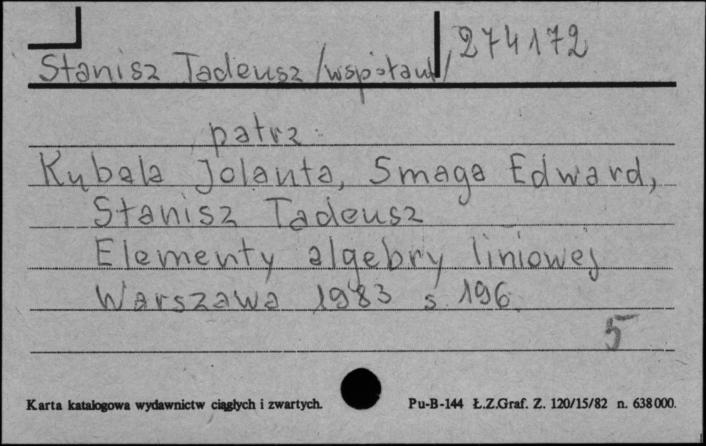 274172
Stanisz Tadeusz /współaut/
patrz:
Kubala Jolanta, Smaga Edward,
Stanisz Tadeusz
Elementy algebry liniowej
Warszawa 1983 s. 196.
5
Karta katalogowa wydawnictw ciągłych i zwartych. Pu-B-144 Ł.Z.Graf. Z. 120/15/82 n. 638000.